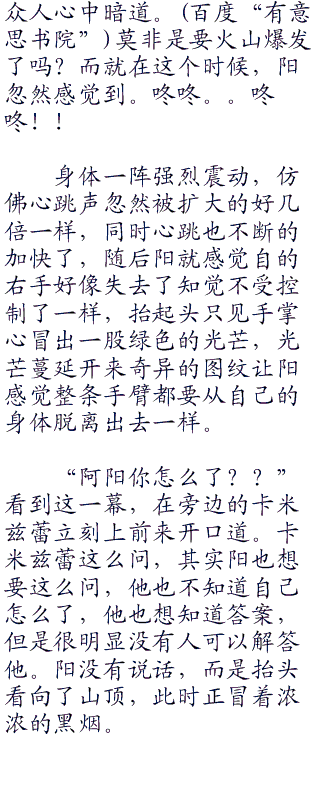 众人心中暗道。(百度“有意
思书院”)莫非是要火山爆发
了吗？而就在这个时候，阳
忽然感觉到。咚咚。。咚
咚！！
身体一阵强烈震动，仿
佛心跳声忽然被扩大的好几
倍一样，同时心跳也不断的
加快了，随后阳就感觉自的
右手好像失去了知觉不受控
制了一样，抬起头只见手掌
心冒出一股绿色的光芒，光
芒蔓延开来奇异的图纹让阳
感觉整条手臂都要从自己的
身体脱离出去一样。
“阿阳你怎么了？？”
看到这一幕，在旁边的卡米
兹蕾立刻上前来开口道。卡
米兹蕾这么问，其实阳也想
要这么问，他也不知道自己
怎么了，他也想知道答案，
但是很明显没有人可以解答
他。阳没有说话，而是抬头
看向了山顶，此时正冒着浓
浓的黑烟。